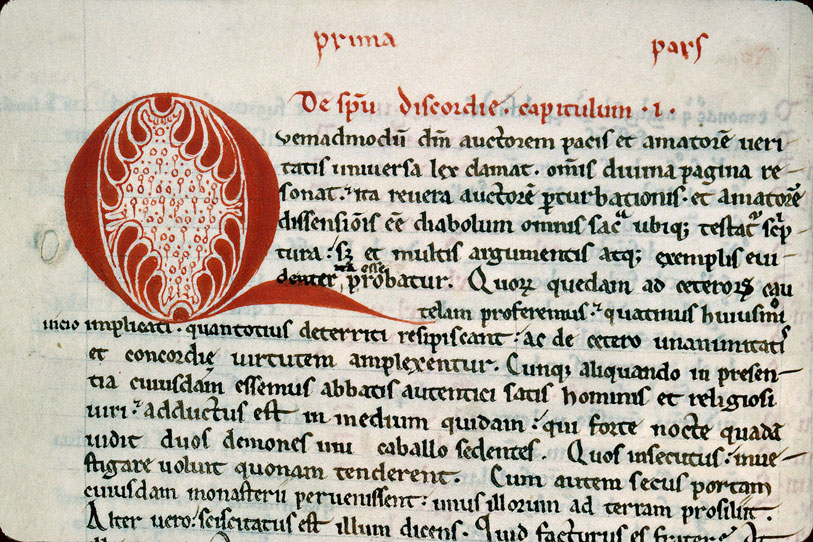 prima pars
De spu discordie . capitulum . i .
Quemadmodu dm auctorem pacis et amatore ueri-
tatis uniuersa lex clamat . omis diuina pagina re-
sonat . ita reuera auctore pturbationis . et amatore
dissensionis ee diabolum omnis sac ubiq; testat scp-
tura : sz et multis argumentis atq; exemplis eui-
denter probatur . Quorz quedam ad ceteroru cau
telam proferemus : quatinus huiusmoi
uicio implicati . quantotius deterriti resipiscant . ac de cetero unanimitatis
et concordie uirtutem amplexentur . Cunq; aliquando in presen-
tia cuiusdam essemus abbatis autentici satis hominis et religiosi
uiri : adductus est in medium quidam : qui forte nocte quada
uidit duos demones uni caballo sedentes . Quos insecutus : inue-
stigare uoluit quonam tenderent . Cum autem secus portam
cuiusdam monasterii peruenissent : unus illorum ad terram prosiliit .
Alter uero : sciscitatus est illum dicens . Quid facturus es frater